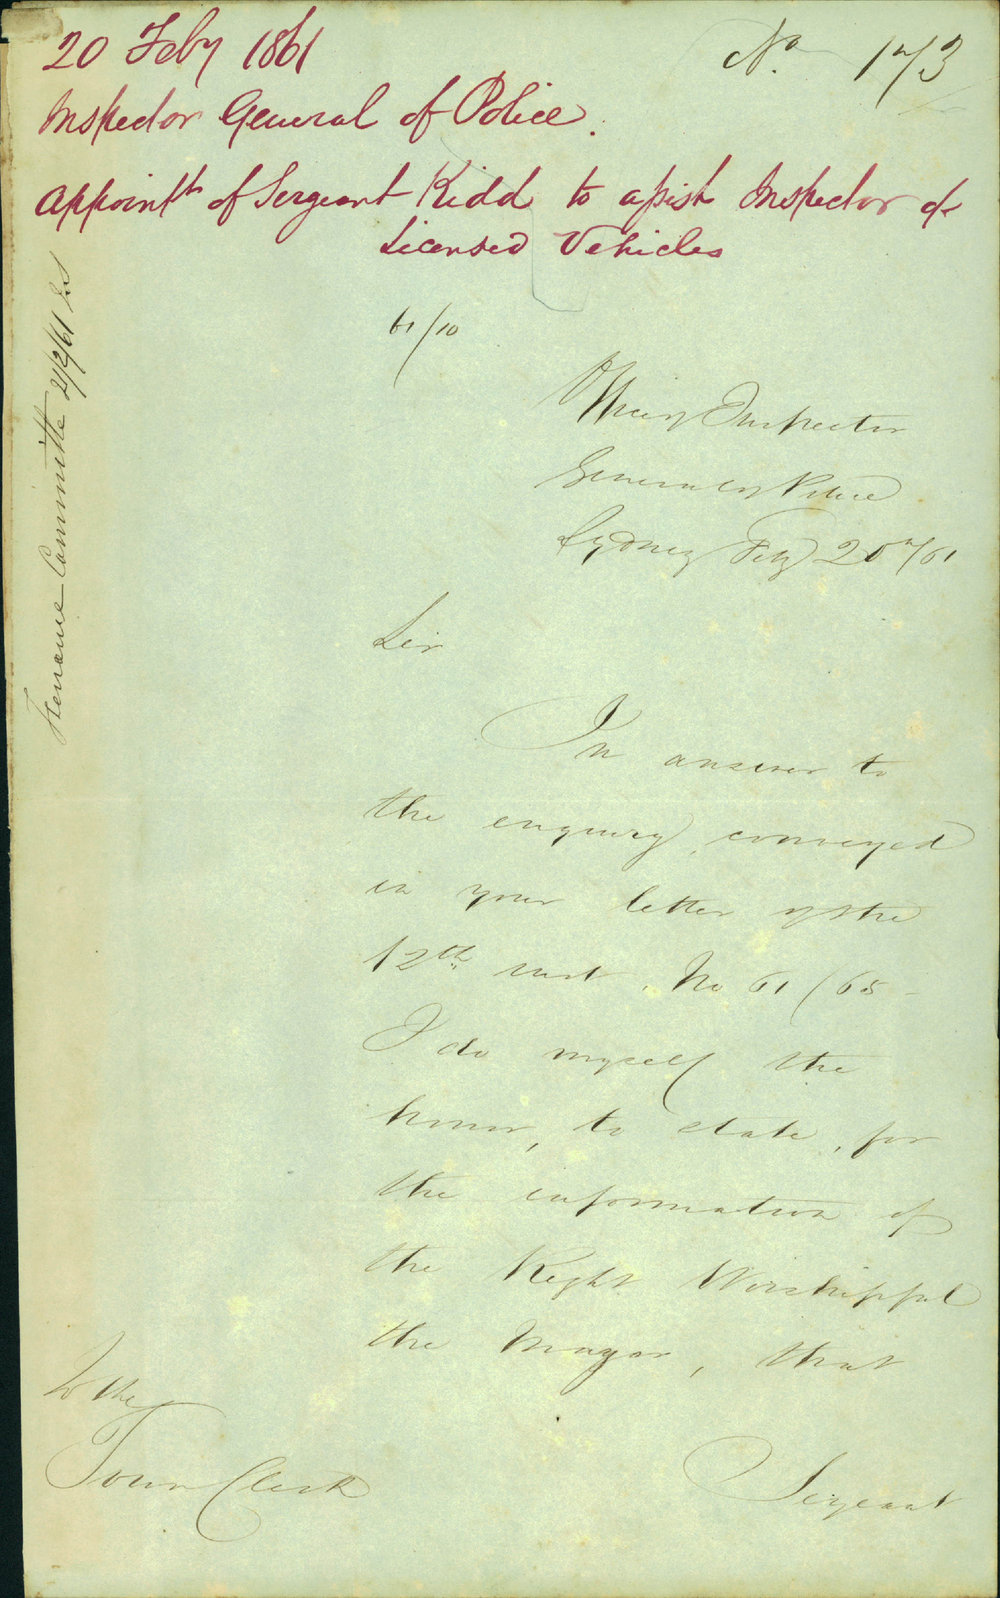 20 Feby 1861
No 173
Inspector General of Police.
Appointt of Sergeant Kidd to assist Inspector of
Licensed Vehicles
61/10
Office of Inspector
General of Police
Sydney Feby 20th/61
Sir
In answer to
the enquiry, conveyed
in your letter of the
12th inst, No 61/65 -
I do myself the
honor, to state, for
the information of
the Right Worshipful
the Mayor, that
Sergeant
To the
Town Clerk
Finance Committee 21/2/61